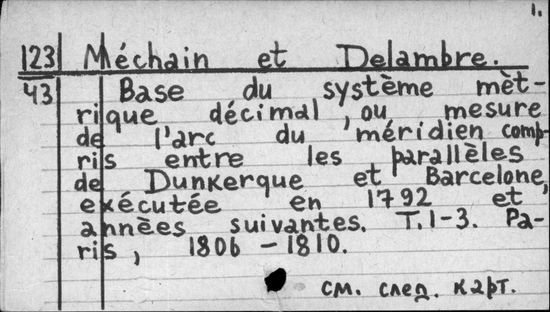 1.
123 Méchain et Delambre.
43 Base du système mèt-
rique décimal, ou mesure
de l'arc du méridien comp-
ris entre les parallèles
de Dunkerque et Barcelone,
exécutée en 1792 et
annèes suivantes. T.1-3. Pa-
ris, 1806 - 1810.
см. след. карт.